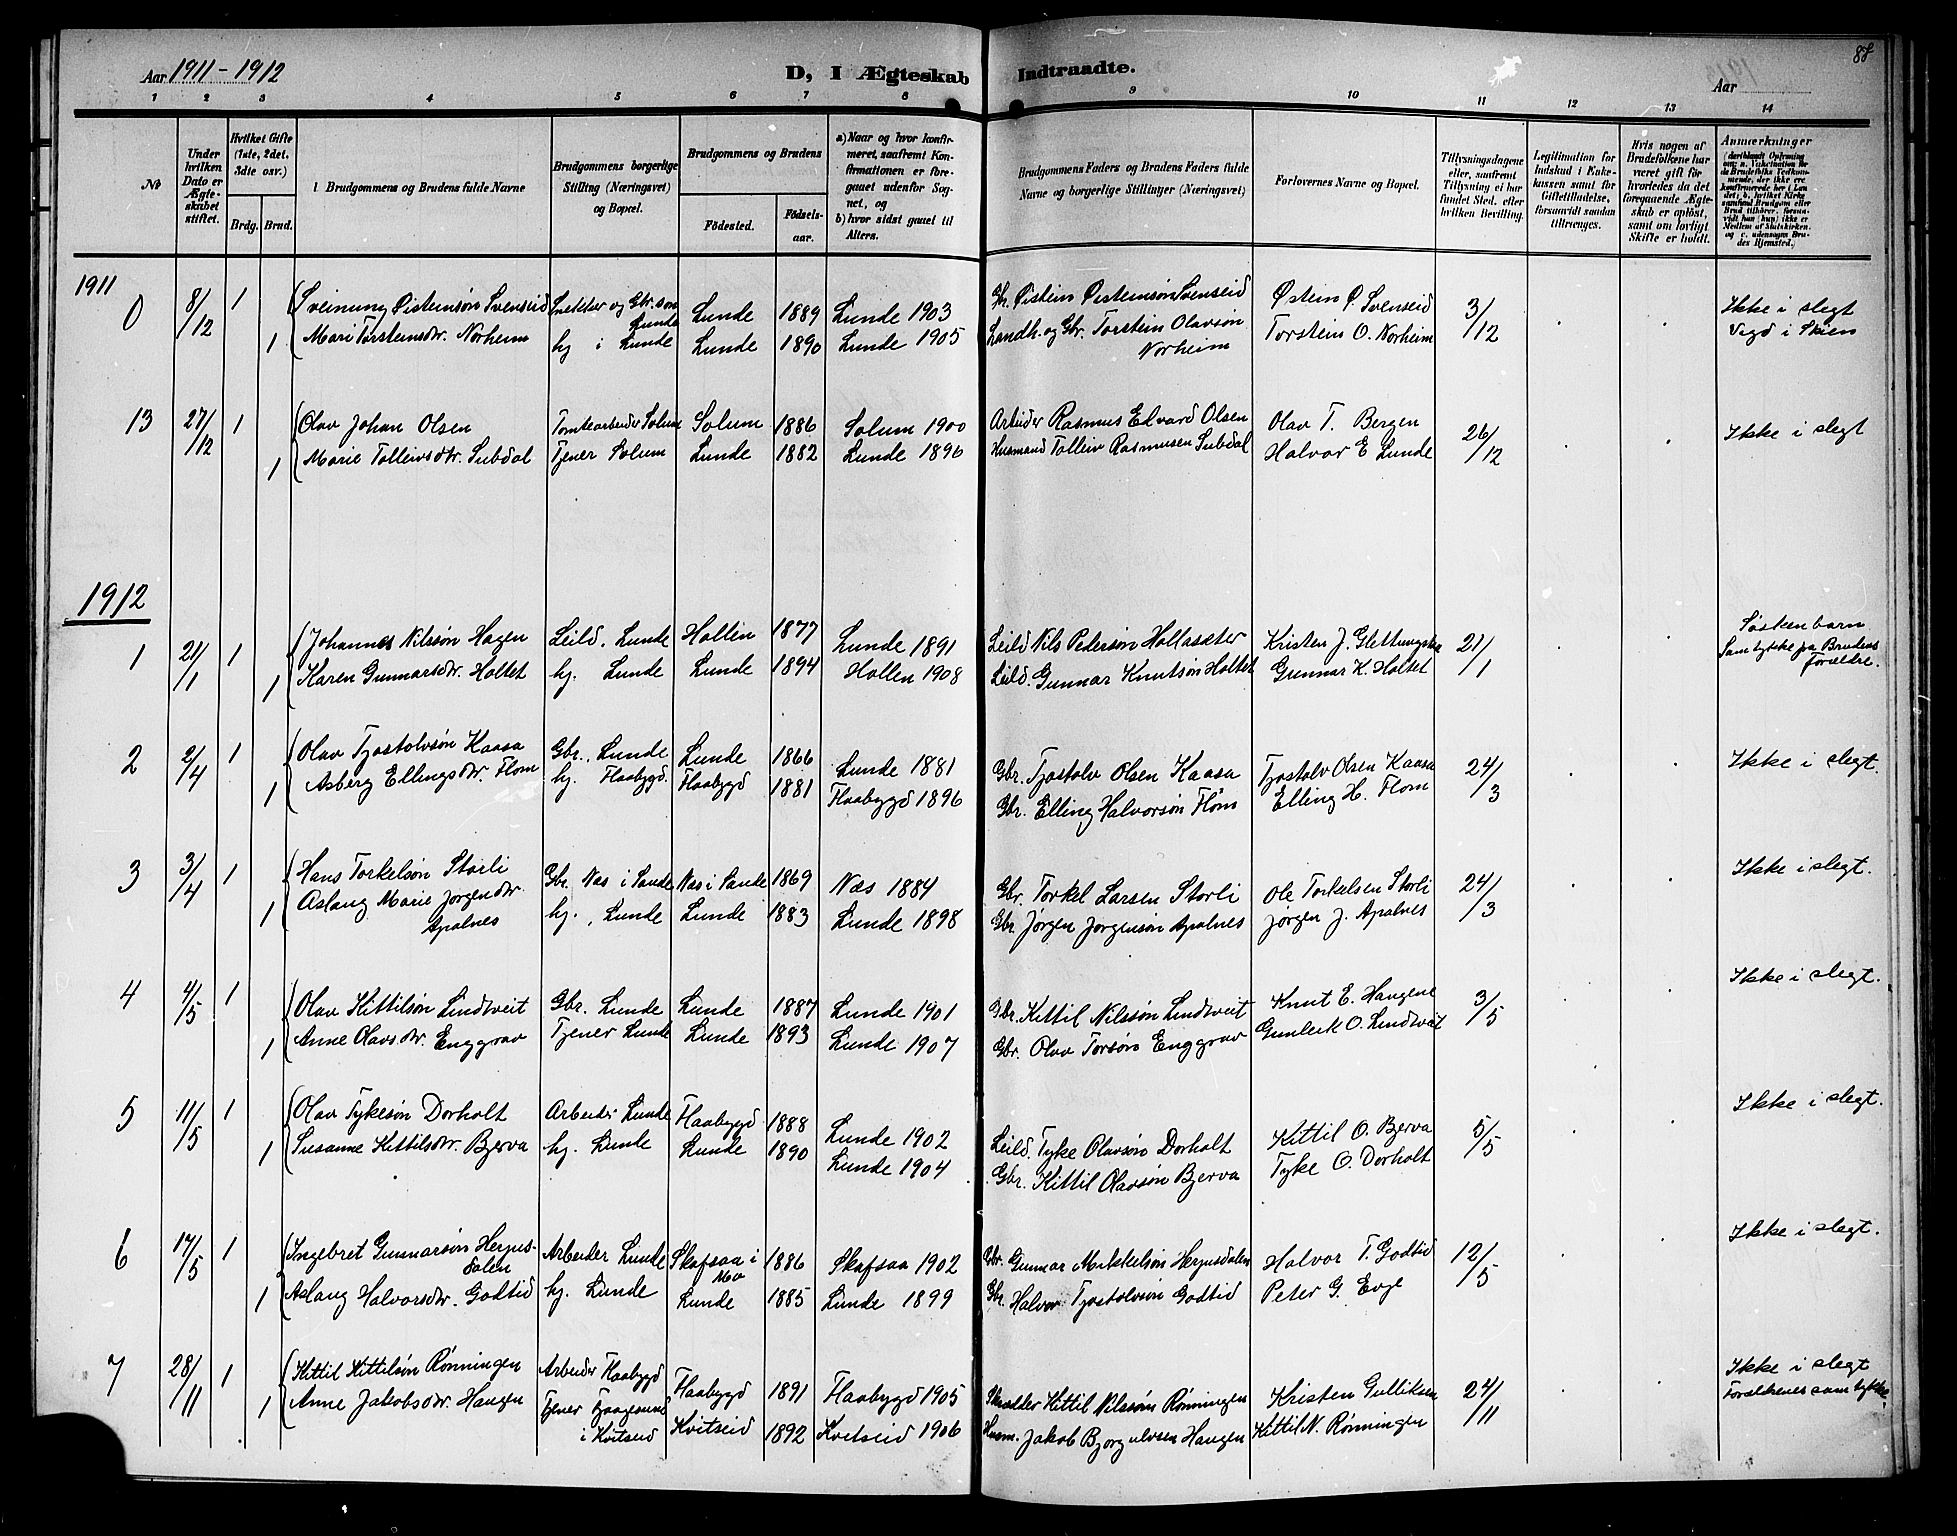 Aar 1911-1912 D, I Ægteskab Indtraadte. Aar 88
1 2 3 4 5 6 7 8 9 10 11 12 13 14
No
Under hvilken Dato er Ægteskabet stiftet.
Hvilket Gifte (1ste, 2det, 3die osv.)
Brdg. Brud.
Brudgommens og Brudens fulde Navne
Brudgommens borgerlige Stilling (Næringsvei) og Bopæl.
Brudgommens og Brudens
Fødested. Fødselsaar.
a) Naar og hvor konfirmeret, saafremt Konfirmationen er foregaaet udenfor Sognet, og
b) hvor sidst gaaet til Alters.
Brudgommens Faders og Brudens Faders fulde Navne og borgerlige Stillinger (Næringsvei)
Forlovernes Navne og Bopæl.
Tillysningsdagene eller, saafremt Tillysning ei har fundet Sted, efter hvilken Bevilling.
Legitimation for Indskud i Enkekassen samt for Giftetilladelse, forsaavidt saadan tiltrænges.
Hvis nogen af Brudefolkene har været gift før hvorledes da det foregaaende Ægteskab er opløst, samt om lovligt Skifte er holdt.
Anmærkninger
1911
0 8/12 1 Sveinung Øisteinsøn Svenseid Snekker og Gbr.son Lunde Lunde 1889 Lunde 1903 Gbr. Øistein Øisteinsøn Svenseid Østein Ø. Svenseid 3/12 Ikke i slegt
1 Mari Torsteinsdtr. Norheim hj i Lunde Lunde 1890 Lunde 1905 Landh. og Gbr. Torstein Olavsøn Norheim Torstein O. Norheim Vigd i Skien
13 27/12 1 Olav Johan Olsen Tomtearbeider Solum Solum 1886 Solum 1900 Arbeider Rasmus Edvard Olsen Olav T. Bergen 26/12 Ikke i slegt
1 Marie Tolleivsdtr. Subdal Tjener Solum Lunde 1882 Lunde 1896 Husmand Tolleiv Rasmusen Subdal Halvor E Lunde
1912
1 21/1 1 Johannes Nilssøn Hagen Leild. Lunde Hollen 1877 Lunde 1891 Leild Nils Pedersøn Hollasæter Kristen J. 21/1 Søskenbarn
1 Karen Gunnarsdtr. Holtet hj. Lunde Lunde 1894 Hollen 1908 Leild. Gunnar Knutsøn Holtet Gunnar K. Holtet Samtykke fra Brudens Forældre.
2 2/4 1 Olav Tjostolvsøn Kaasa Gbr., Lunde Lunde 1866 Lunde 1881 Gbr. Tjostolv Olsen Kaasa Tjostolv Olsen Kaasa 24/3 Ikke i slegt.
1 Asberg Ellingsdtr. Flom hj. Flaabygd. Flaabygd 1881 Flaabygd 1896 Gbr. Elling Halvorsøn Flom Elling H. Flom
3 3/4 1 Hans Torkelsøn Storli Gbr. Næs i Sande Næs i Sande 1869 Næs 1884 Gbr. Torkel Larsen Storli Ole Torkelsen Storli 24/3 Ikke i slegt.
1 Aslaug Marie Jørgensdtr. Apalnes hj., Lunde Lunde 1883 Lunde 1898 Gbr. Jørgen Jørgensøn Apalnes Jørgen J. Apalnes
4 4/5 1 Olav Kittilsøn Lindtveit Gbr. Lunde Lunde 1887 Lunde 1901 Gbr. Kittil Nilssøn Lindtveit Knut E. Haugene 3/5 Ikke i slegt.
1 Anne Olavsdtr. Enggrav Tjener Lunde Lunde 1893 Lunde 1907 Gbr. Olav Torsøn Enggrav Gunleik O. Lindtveit
5 11/5 1 Olav Tykesøn Dorholt Arbeider Lunde Flaabygd 1888 Lunde 1902 Leild. Tyke Olavsøn Dorholt Kittil O. Bjerva 5/5 Ikke i slegt.
1 Susanne Kittilsdtr. Bjerva hj. Lunde Lunde 1890 Lunde 1904 Gbr. Kittil Olavsøn Bjerva Tyke O. Dorholt
6 17/5 1 Ingebret Gunnarsøn Herpusdalen Arbeider Lunde Skafsaa i Mo 1886 Skafsaa 1902 Gbr. Gunnar Mikkelsøn Herpusdalen Halvor T. Godtid 12/5 Ikke i slegt.
1 Aslaug Halvorsdtr. Godtid hj. Lunde Lunde 1885 Lunde 1899 Gbr. Halvor Tjostolvsøn Godtid Peter G. Evje
7 28/11 1 Kittil Kittilsøn Rønningen Arbeider Flaabygd Flaabygd 1891 Flaabygd 1905 Skrædder Kittil Nilssøn Rønningen Kristen Gulliksen 24/11 Ikke i slegt
1 Anne Jakobsdtr. Haugen Tjener Tjaagesund i Kvitseid Kvitseid 1892 Kvitseid 1906 Husm. Jakob Bjørgulvsen Haugen Kittil N. Rønningen Forældrenes samtykke.